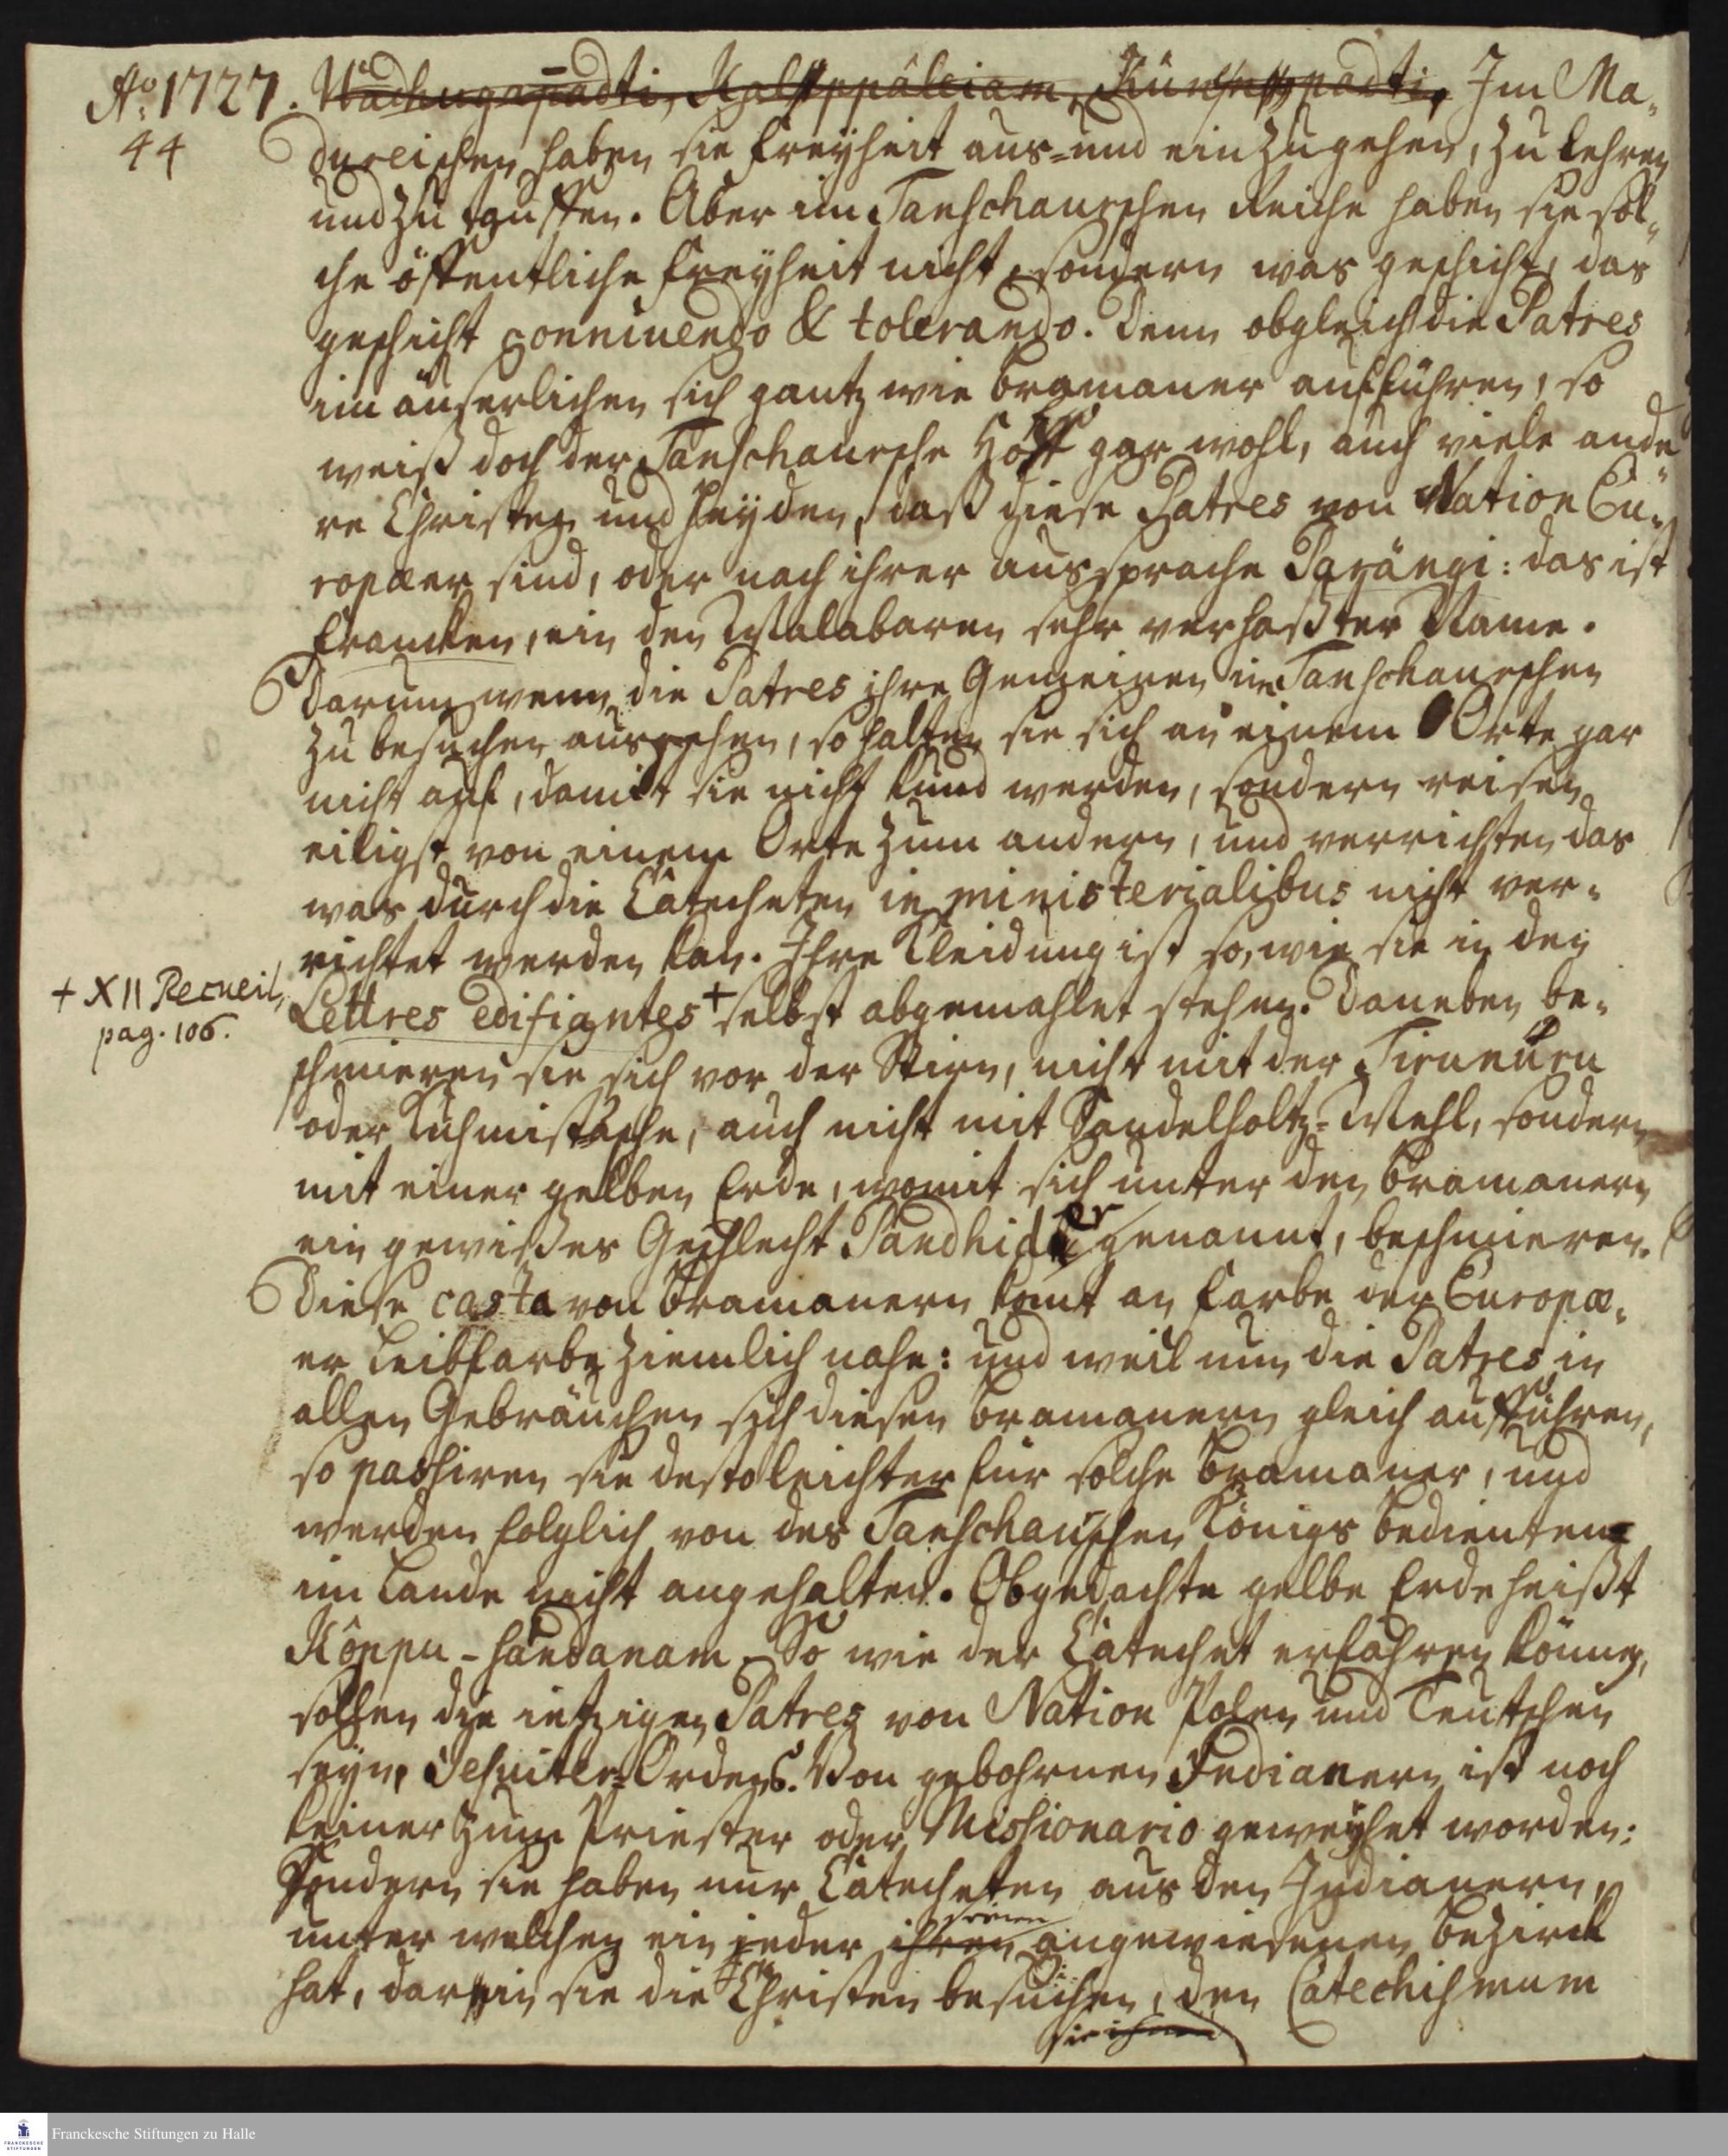 Ao. 1727. Wadhugapadti, Kalluppâleiam, Kûnampadti, Im Ma-
44
dureischen haben sie Freyheit aus- und ein zu gehen, zu lehren
und zu tauffen. Aber im Tanschaurschen Reiche haben sie sol-
che öffentliche Freyheit nicht, sondern was geschicht, das
geschicht connivendo & tolerando. Denn obgleich die Patres
im äuserlichen sich gantz wie Bramaner aufführen, so
weiß doch der Tanschaursche Hoff gar wohl, auch viele ande-
re Christen und Heyden, daß diese Patres von Nation Eu-
ropæer sind, oder nach ihrer aussprache Parângi: das ist
Francken, ein den Malabaren sehr verhaßter Name.
Darum wenn die Patres ihre Gemeinen im Tanschaurschen
zu besuchen ausgehen, so halten sie sich an einem Orte gar
nicht auf, damit sie nicht kund werden, sondern reisen
eiligst von einem Orte zum andern, und verrichten das
was durch die Catecheten in ministerialibus nicht ver-
richtet werden kan. Ihre Kleidung ist so, wie sie in den
+ XII Recueil,
pag. 106.
Lettres edifiantes + selbst abgemahlet stehen. Daneben be-
schmieren sie sich vor der Stirn, nicht mit der Tiruniru
oder Kuhmistasche, auch nicht mit Sandelholtz-Mehl, sondern
mit einer gelben Erde, womit sich unter den Bramanern
ein gewißes Geschlecht Pandhider genannt, beschmieren.
Diese casta von Bramanern komt an Farbe der Europæ-
er Leibfarbe ziemlich nahe: und weil nun die Patres in
allen Gebräuchen sich diesen Bramanern gleich aufführen,
so passiren sie desto leichter für solche Bramaner, und
werden folglich von des Tanschaurschen Königs Bedienten
im Lande nicht angehalten. Obgedachte gelbe Erde heißt
Kôppu-sandanam. So wie der Catechet erfahren können,
sollen die ietzigen Patres von Nation Polen und Teutschen
seyn, Jesuiter-Ordens. Von gebohrnen Indianern ist noch
keiner zum Priester oder Missionario geweyhet worden:
Sondern sie haben nur Catecheten aus den Indianern,
seinen
unter welchen ein jeder ihren angewiesenen Bezirck
hat, darin sie die Christen besuchen, den Catechismum
sie ihnen
Franckesche Stiftungen zu Halle
FRANCKESCHE STIFTUNGEN